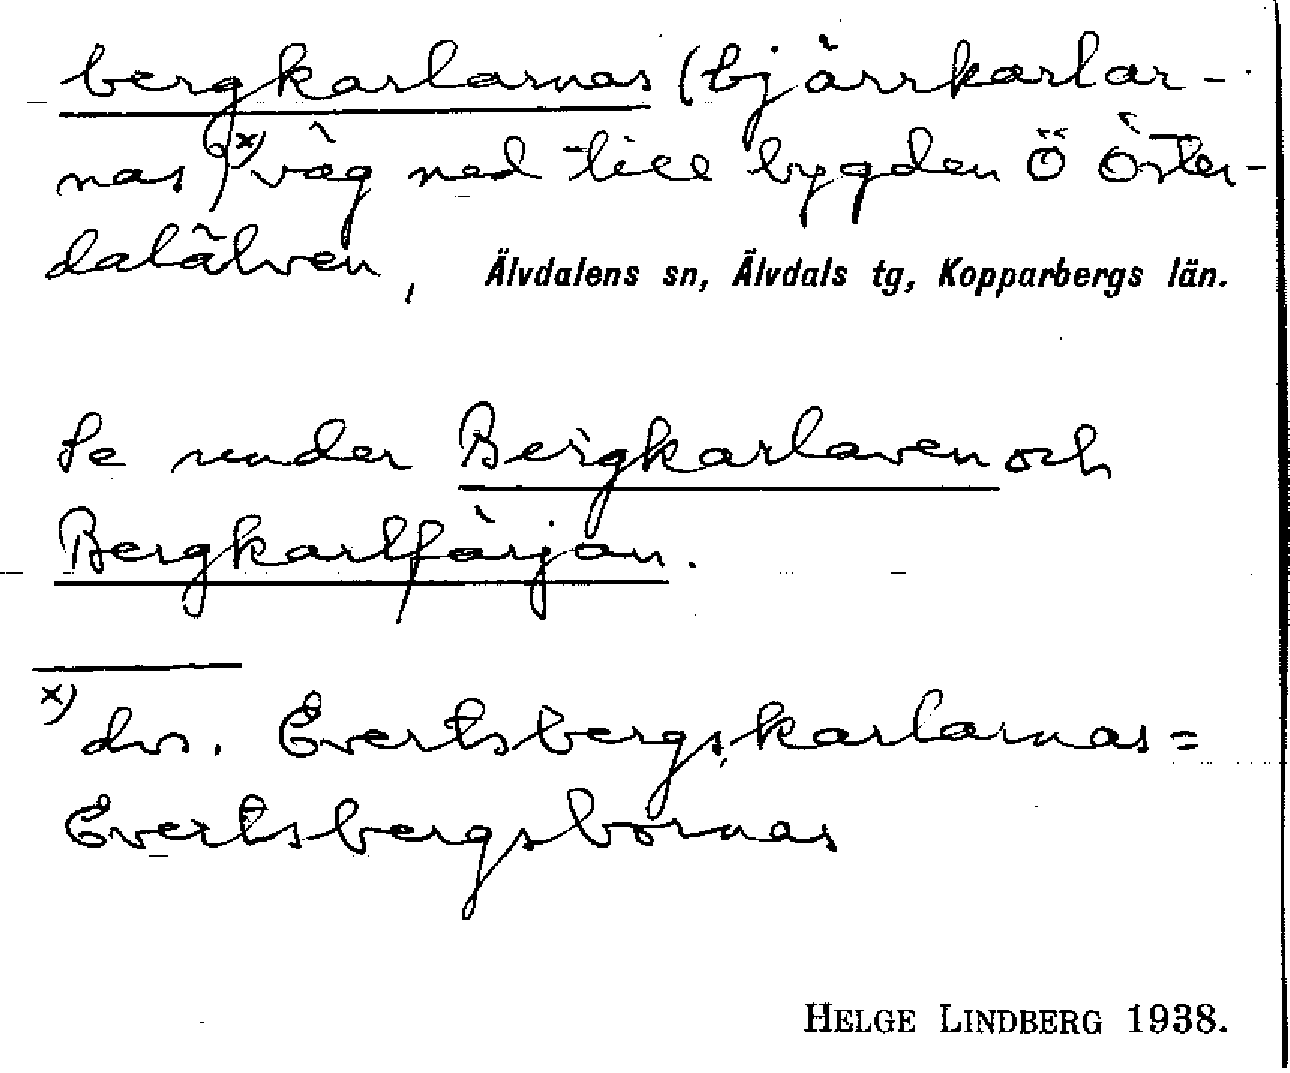 bergkarlarnas (bjärrkarlar-
nas)x) väg ned till bygden Ö Öster-
dalälven, Älvdalens sn, Älvdals tg, Kopparbergs län.
Se under Bergkarlaven och
Bergkarlfärjan.
x) dvs. Evertsbergskarlarnas =
Evertsbergsbornas
HELGE LINDBERG 1938.